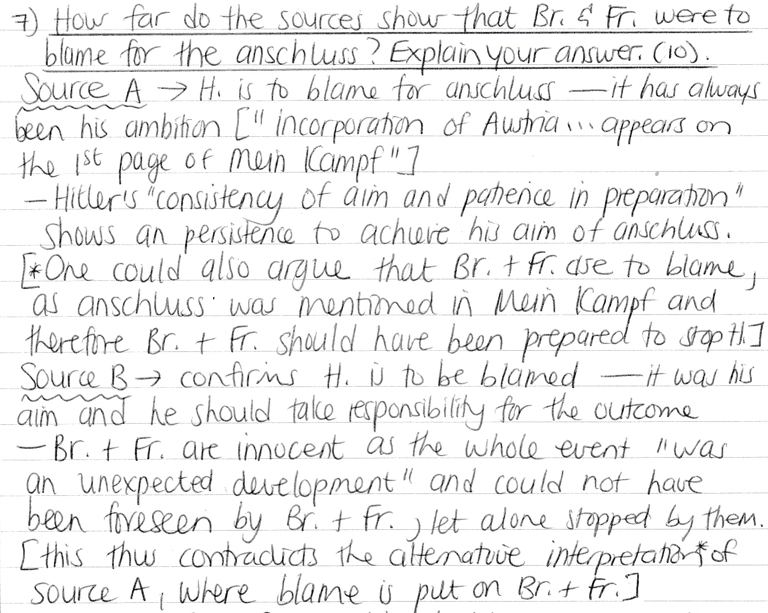 7) How far do the sources show that Br. & Fr. were to
blame for the anschluss? Explain your answer. (10).
Source A → H. is to blame for anschluss — it has always
been his ambition [" incorporation of Austria ... appears on
the 1st page of Mein Kampf"]
— Hitler's "consistency of aim and patience in preparation"
shows an persistence to achieve his aim of anschluss.
[*One could also argue that Br. + Fr. are to blame,
as anschluss was mentioned in Mein Kampf and
therefore Br. + Fr. should have been prepared to stop H.]
Source B → confirms H. is to be blamed — it was his
aim and he should take responsibility for the outcome
— Br. + Fr. are innocent as the whole event "was
an unexpected development" and could not have
been foreseen by Br. + Fr., let alone stopped by them.
[this thus contradicts the alternative interpretation* of
source A, where blame is put on Br. + Fr.]